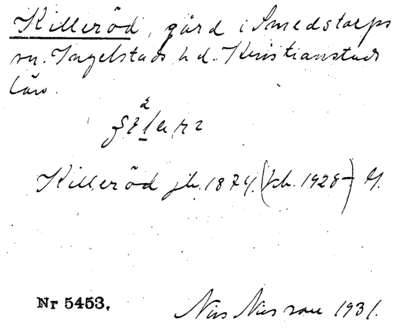 Killeröd, gård i Smedstorps
sn. Ingelstads hd. Kristianstads
län.
Killeröd jb. 1874 (kb. 1928-) G.
Nr 5453. Nils Nilsson 1931.